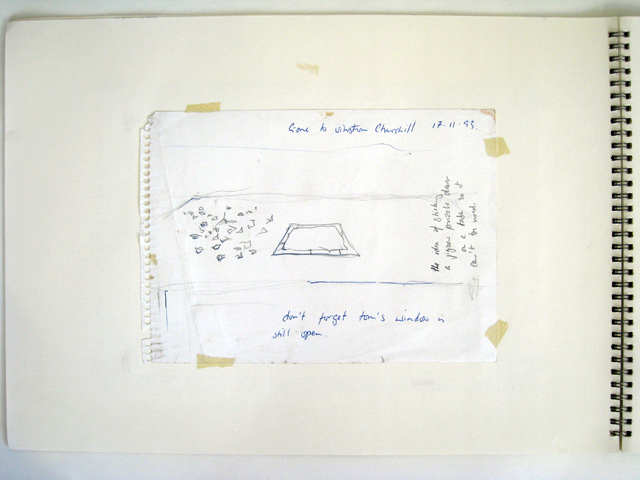 Gone to Winston Churchill 17.11.93.
the idea of sticking
a jigsaw puzzle down
on a table so it
can't be used.
don't forget tom's window is
still open.